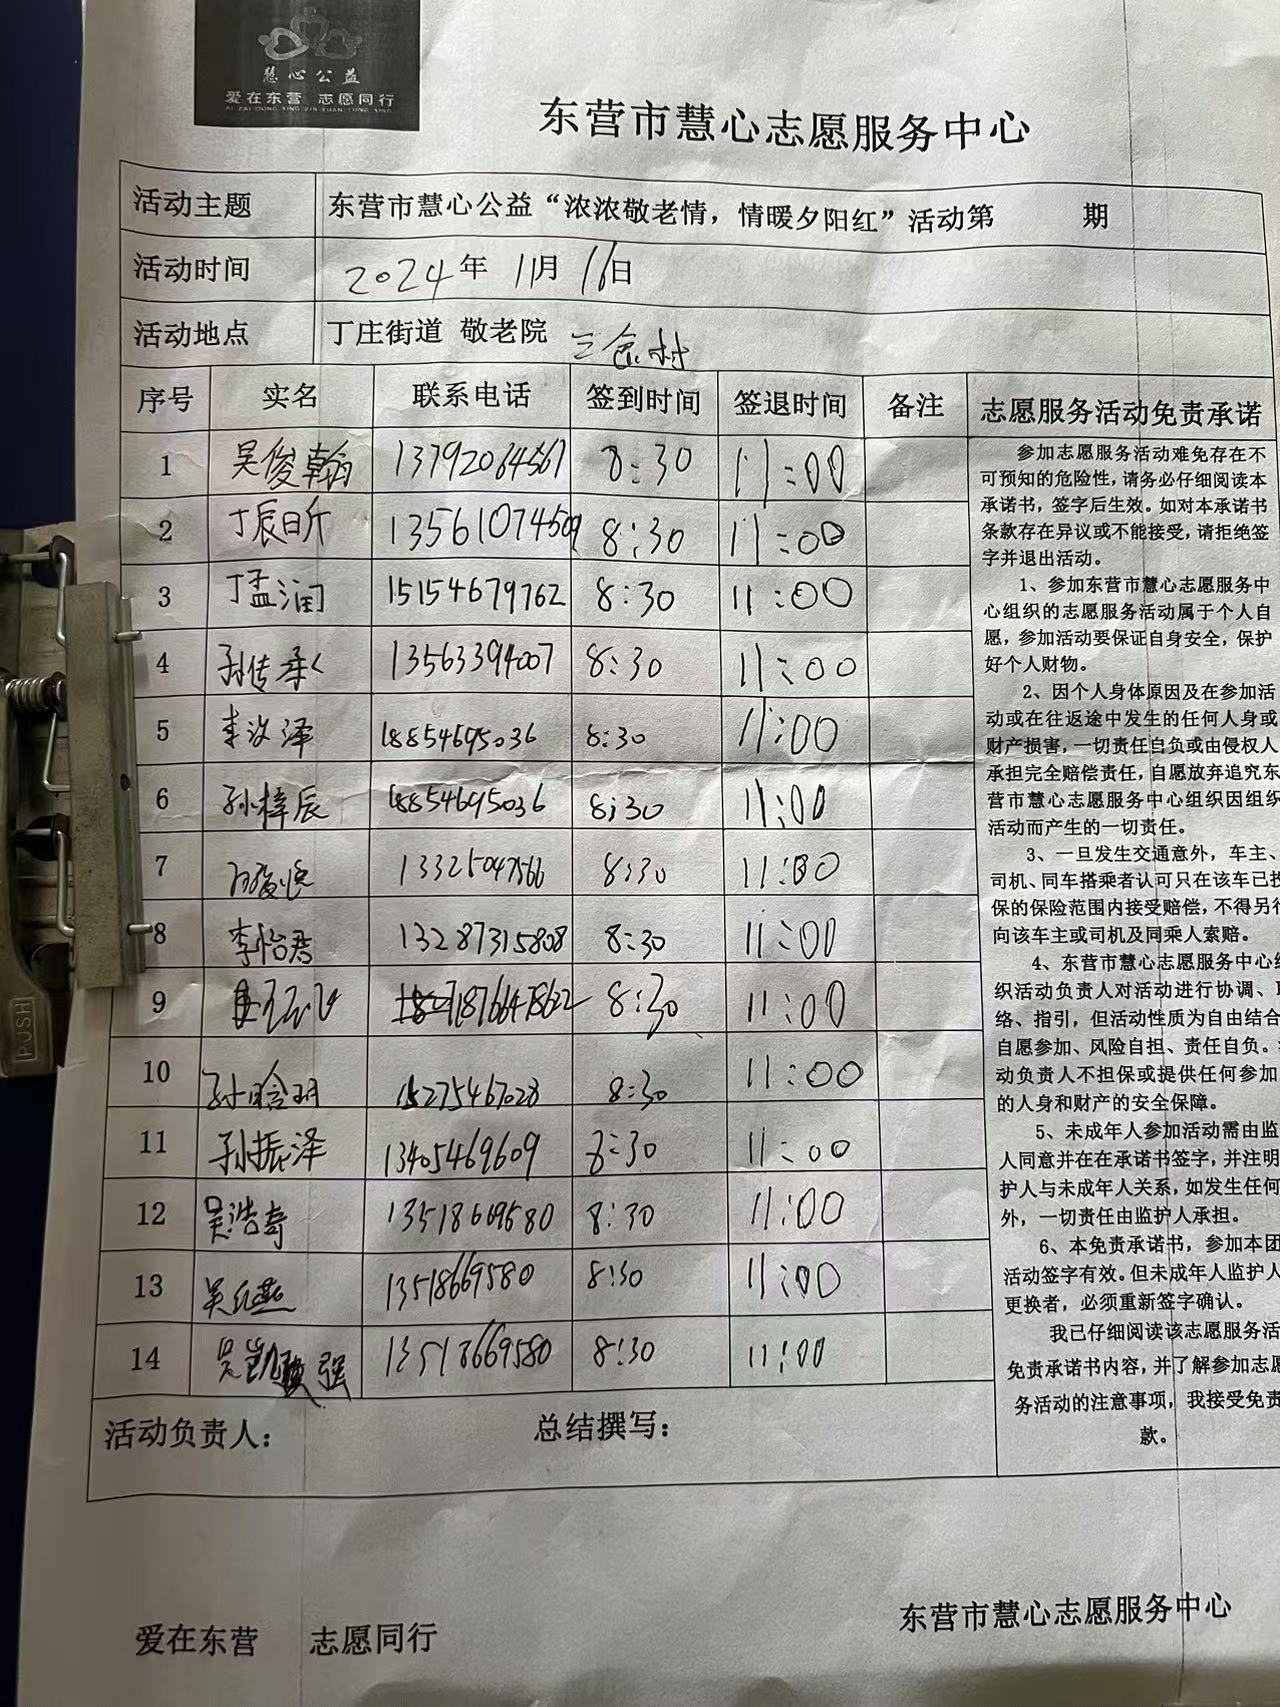 慧心公益
爱在东营 志愿同行
AI ZAI DONG YING ZHI YUAN TONG XING
东营市慧心志愿服务中心
活动主题 东营市慧心公益“浓浓敬老情，情暖夕阳红”活动第 期
活动时间 2024年 11月 16日
活动地点 丁庄街道 敬老院 三 村
序号 实名 联系电话 签到时间 签退时间 备注
1 吴俊翰 13792064567 8:30 11:00
2 丁辰昕 13561074509 8:30 11:00
3 丁孟润 15154679762 8:30 11:00
4 孙传承 13563394007 8:30 11:00
5 李汶泽 18854695036 8:30 11:00
6 孙梓辰 18854695036 8:30 11:00
7 13325047566 8:30 11:00
8 李怡君 13287315808 8:30 11:00
9 18766478622 8:30 11:00
10 孙晗玥 15275467028 8:30 11:00
11 孙振泽 13405469609 8:30 11:00
12 吴浩奇 13518669580 8:30 11:00
13 吴 燕 13518669580 8:30 11:00
14 吴凯 强 13518669580 8:30 11:00
活动负责人： 总结撰写：
志愿服务活动免责承诺
参加志愿服务活动难免存在不
可预知的危险性，请务必仔细阅读本
承诺书，签字后生效。如对本承诺书
条款存在异议或不能接受，请拒绝签
字并退出活动。
1、参加东营市慧心志愿服务中
心组织的志愿服务活动属于个人自
愿，参加活动要保证自身安全，保护
好个人财物。
2、因个人身体原因及在参加活
动或在往返途中发生的任何人身或
财产损害，一切责任自负或由侵权人
承担完全赔偿责任，自愿放弃追究东
营市慧心志愿服务中心组织因组织
活动而产生的一切责任。
3、一旦发生交通意外，车主、
司机、同车搭乘者认可只在该车已投
保的保险范围内接受赔偿，不得另行
向该车主或司机及同乘人索赔。
4、东营市慧心志愿服务中心组
织活动负责人对活动进行协调、联
络、指引，但活动性质为自由结合
自愿参加、风险自担、责任自负。
动负责人不担保或提供任何参加
的人身和财产的安全保障。
5、未成年人参加活动需由监
人同意并在在承诺书签字，并注明
护人与未成年人关系，如发生任何
外，一切责任由监护人承担。
6、本免责承诺书，参加本团
活动签字有效。但未成年人监护人
更换者，必须重新签字确认。
我已仔细阅读该志愿服务活
免责承诺书内容，并了解参加志愿
务活动的注意事项，我接受免责
款。
爱在东营 志愿同行
东营市慧心志愿服务中心
PUSH